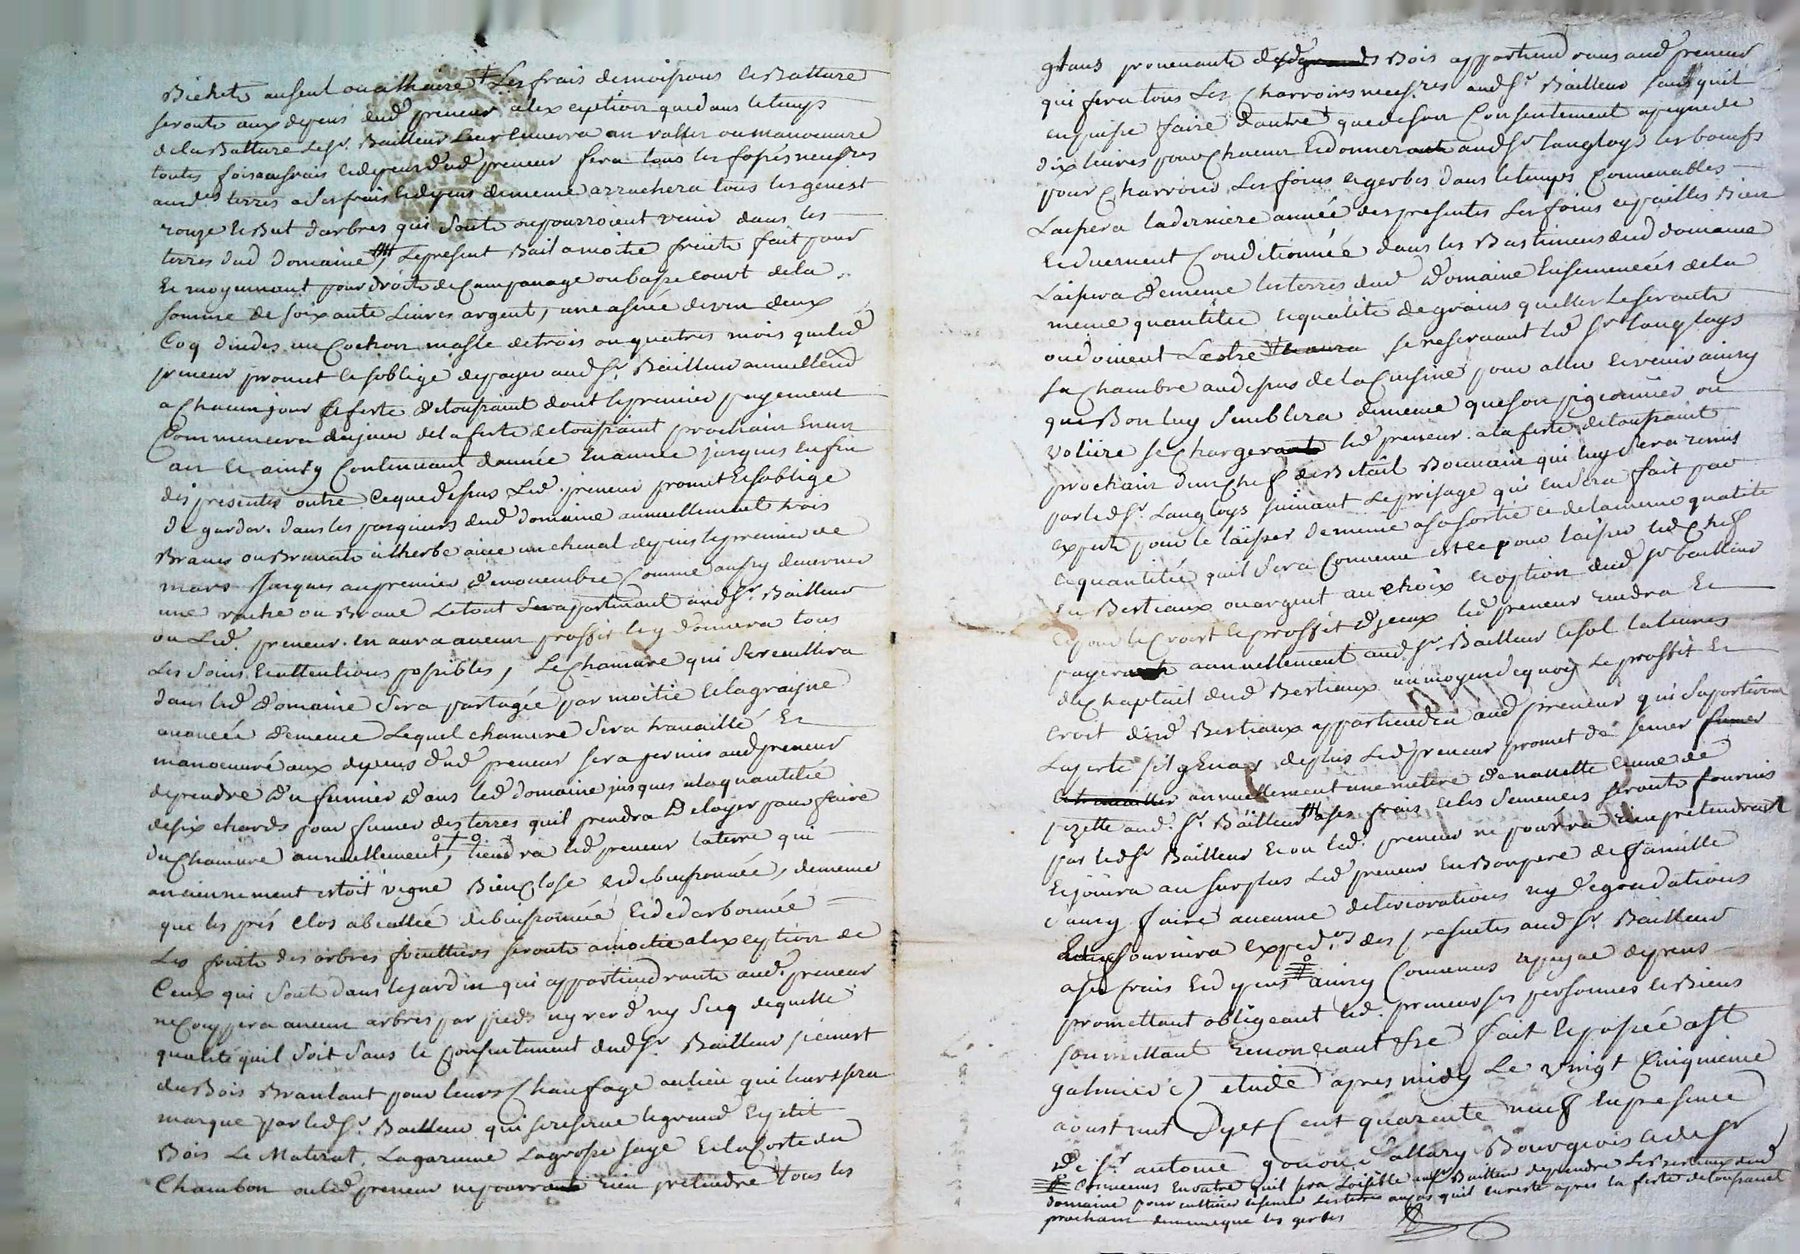 Bichets au seul ou a lhaire Les frais de moissons le Batture
seronte aux depens dud preneur a lexception que dans le temps
de la Batture le Sr. Bailleur leur ennerra un vallet ou manoeuvre
toutes fois aux frais et depens dud preneur fera tous les fossés neufs es
aud. terres a ses frais et depens de meme arrachera tous les genest
ronze et But darbres qui sonte ou pourroient venir dans les
terres dud domaine, Le present Bail a moitié fruite fait pour
Et moyennant pour droite de Campanage ou basse court de la
somme de soixante Livres argent, une asnée de vin deux
Coq dindes un Cochon masle de trois ou quatres mois que led
preneur promet et soblige de payer aud Sr. Bailleur annuellem
a chacun jour et feste de toussaint dont le premier payement
Commencera du jour de la feste de toussaint prochain En un
an Et ainsy Continuant dannée En année jusques En fin
des presentes outre Ce que dessus Led. preneur promet Et soblige
de garder dans les pasquiers dud domaine annuellement trois
Braves ou Bravate a lherbe avec un cheval depuis le premier de
mars jusques au premier de novembre Comme aussy dhiverner
une vache ou Brave Le tout apartenant aud Sr. Bailleur
ou Led. preneur n aura aucun proffit et y donnera tous
Les soins Et attentions possibles, Le Chanvre qui se recuillira
dans led domaine sera partagée par moitié Et la graine
avancée de meme Lequel chanvre sera travaillé Et
manoeuvré aux depens dud preneur sera permis aud preneur
de prendre du fumier dans led domaine jusques a la quantitée
de six chards pour fumer des terres quil prendra a Loyer pour faire
du Chanvre annuellement, tiendra led preneur la terre qui
anciennement estoit vigne Bien Close et debuissonnée, de meme
que les prés Clos debuissonnée Et dedarbonnée
Les fruite des arbres fruittiers seronte a moitié a lexception de
Ceux qui sonte dans le jardin qui appartiendronte aud. preneur
ne Couppera aucun arbres par pieds ny verd ny Secq de quelle
qualité quil soit sans le Consentement dud Sr. Bailleur
du Bois Branlant pour leurs Chaufage au lieu qui leurs sera
marqué par led Sr. Bailleur qui se reserve le grand Et petit
Bois Le Materat, La garenne La grosse saye Et la Coste du
Chambon ou led preneur ne pourra rien pretendre tous les
glans provenante des Bois appartiendrons aud preneur
qui fera tous Les Charroirs necess.res aud Sr. Bailleur sans quil
en puisse faire dautre que de son Consentement a peyne de
dix livres pour Chacun Et donnera aud Sr Langloys les boeufs
pour Charroier Les foins et gerbes dans le temps Convenables
Laissera la derniere année des presentes Les foins et pailles Bien
Et duement Conditionnée dans les Bastimens dud domaine
Laissera de meme les terres dud domaine Ensemencées de la
meme quantitée et qualité de grains quelles Le seronte
ou doivent Lestre se reservant led Sr Langloys
sa Chambre au dessus de la Cuisine pour aller et venir ainsy
que Bon luy Semblera de meme que son pigeonnier ou
voliere se Chargera led preneur a la feste de toussaint
prochain dun Chef de Betail Bouvain qui luy sera remis
par led Sr. Langloys suivant Le prisage qui en sera fait par
experts pour le laisser de meme a sa sortie et de la meme qualité
et quantitée quil sera Convenu estre pour laisser led Chef
En Bestiaux ou argent au choix et option dud Sr bailleur
Et pour le Croist Et proffit diceux led preneur rendra Et
payera annuellement aud Sr. Bailleur Le sol la livres
du Chaptail dud Bestiaux au moyen de quoy Le proffit Et
Croit dud Bestiaux appartiendra aud preneur qui Suportera
La perte sil y En a de plus Led preneur promet de semer
annuellement une metere de navette Et une de
pezette aud. Sr. Bailleur a ses frais et les semences seronte fournis
par led Sr Bailleur Et ou led. preneur ne pourra rien pretendre
Et jouira au surplus Led preneur En Bon pere de famille
Sans y faire aucune deteriorations ny degradations
fournira exped.on des presentes aud Sr. Bailleur
a ses frais Et depens ainsy Convenus a peyne depens
promettant obligeant led. preneur ses personnes et Biens
soumettant renonceant &e fait Et passée a St
galmier etude apres midy Le vingt Cinquieme
aoust mil Sept Cent quarante neuf En presence
de Sr. antoine gonon vallary Bourgeois et de Sr
Convenus En outre quil sera Loisible aud Sr Bailleur de prendre Les bestiaux dud
domaine pour cultiver et semer Les terres au cas quil en reste apres la feste de toussaint
prochain de meme que les gerbes